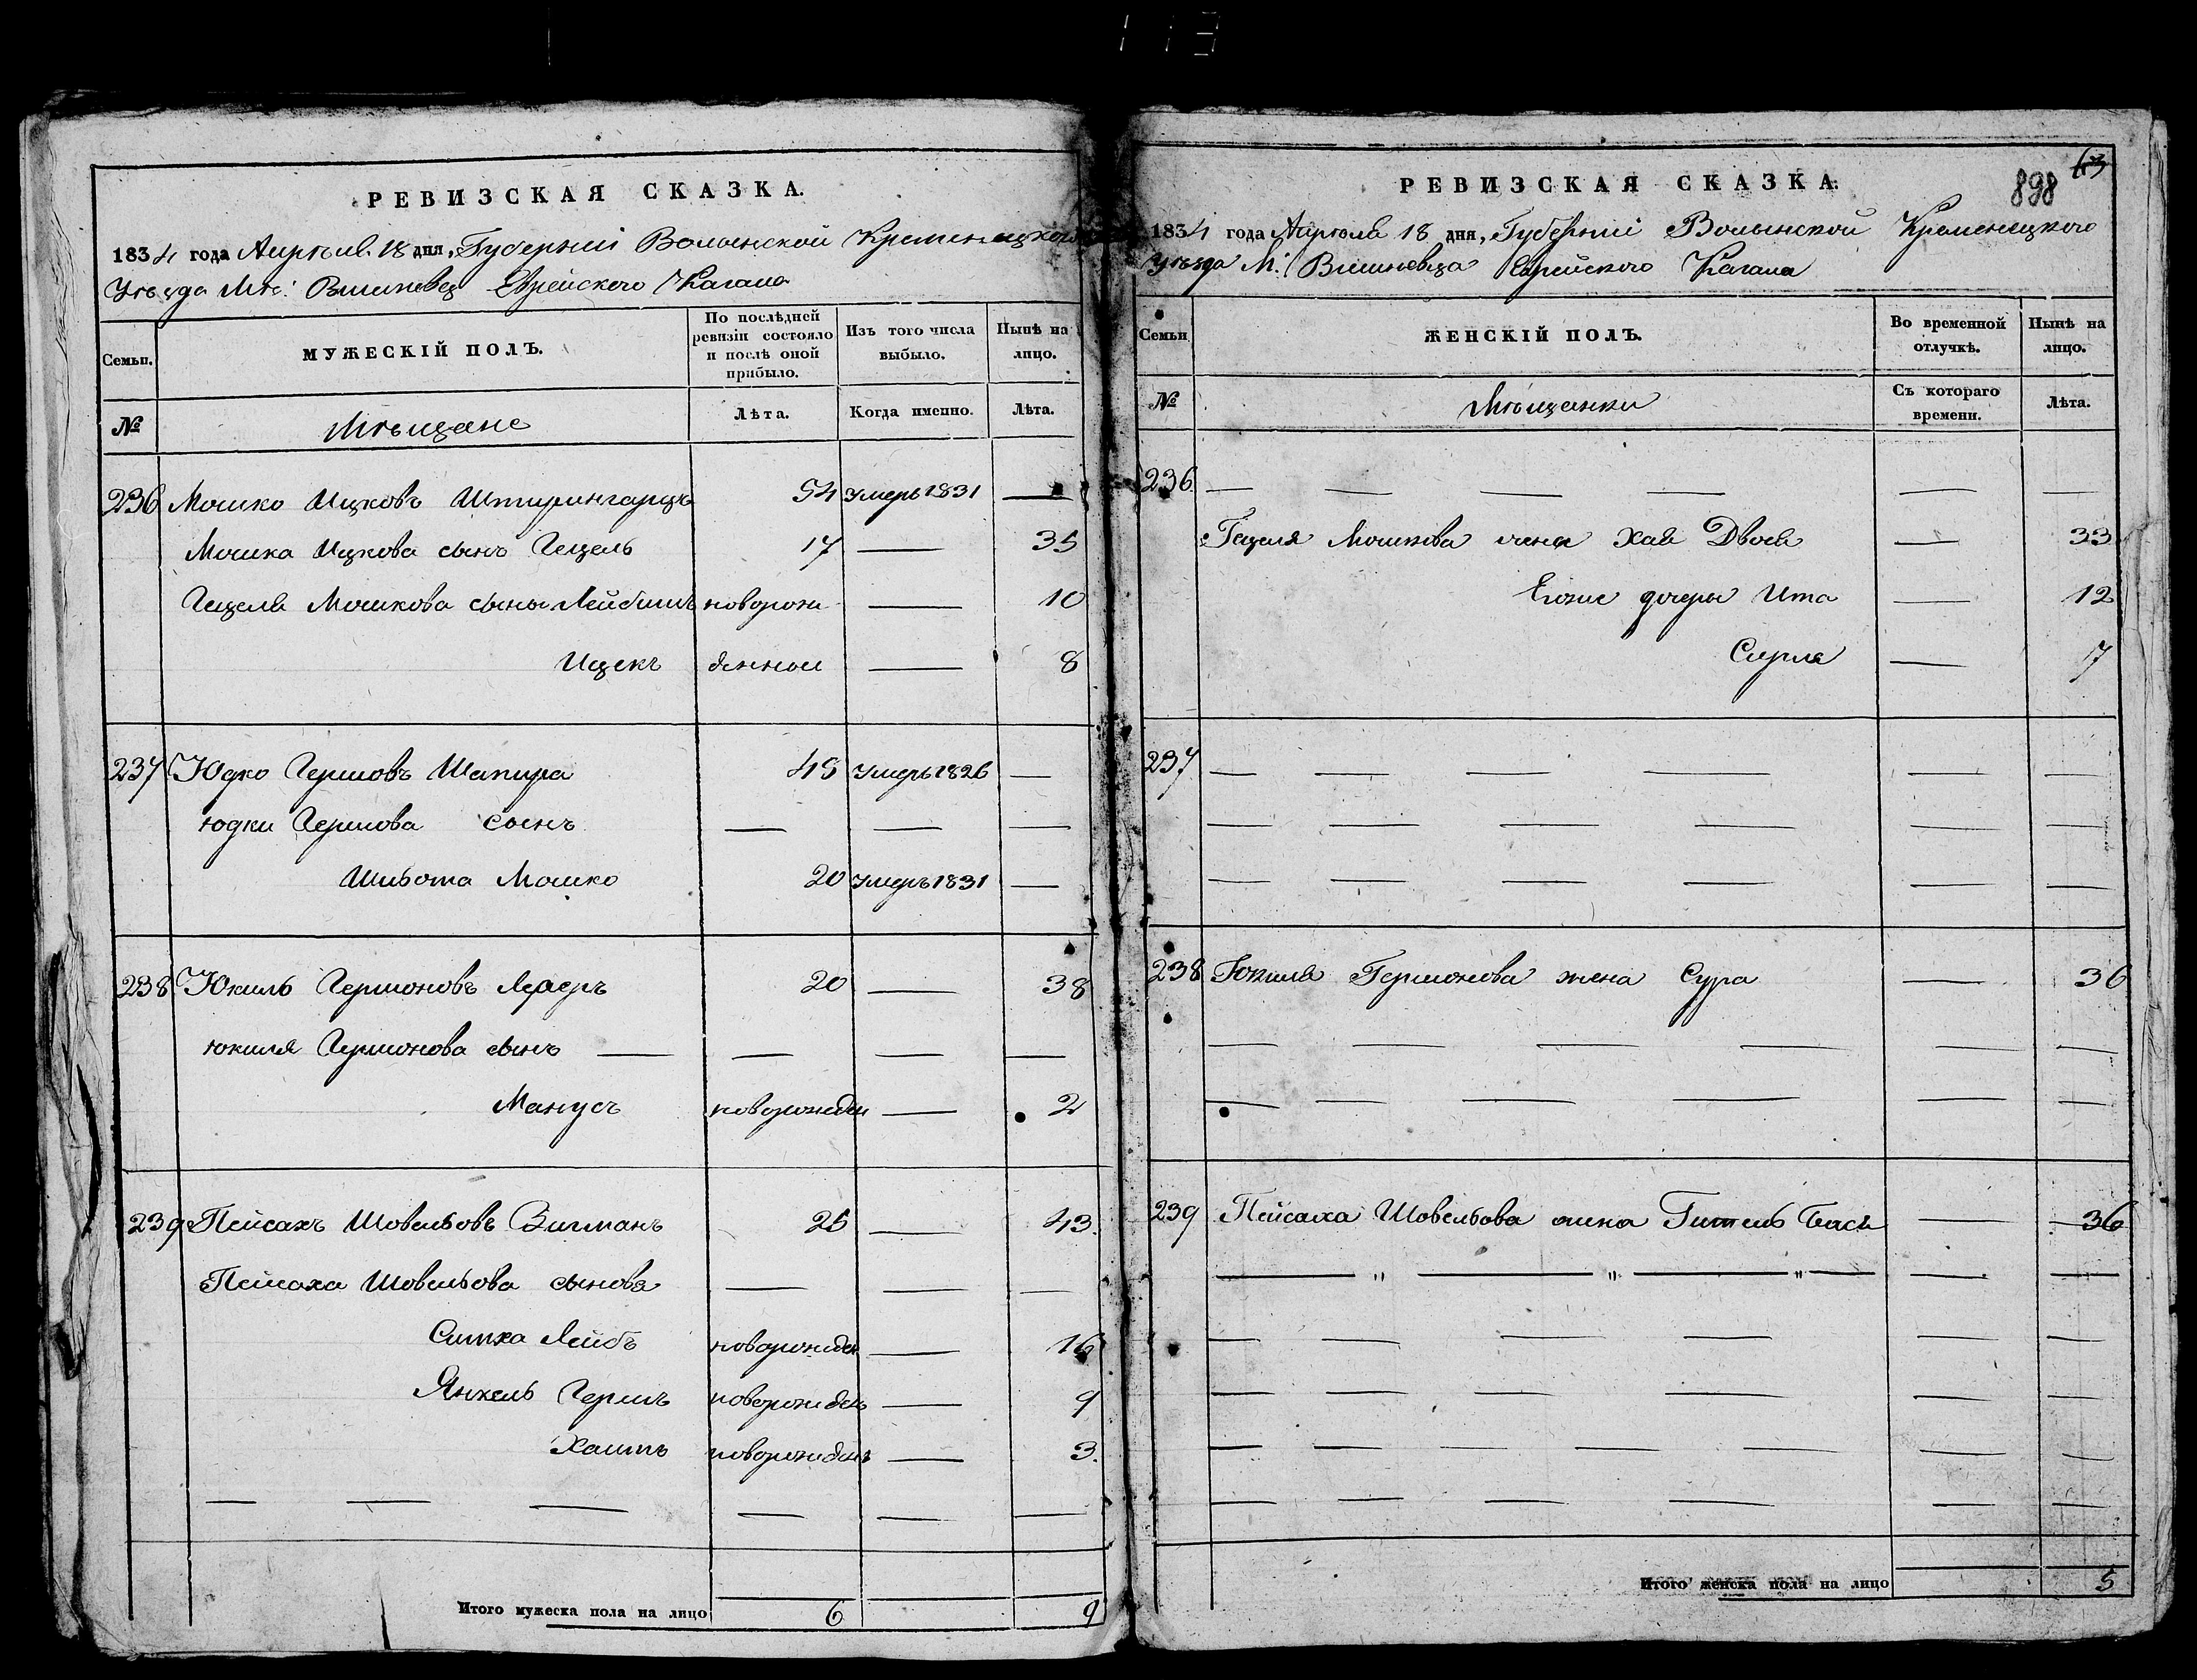 РЕВИЗСКАЯ СКАЗКА.
1834 года Апрѣля 18 дня, Губерніи Волынской Кременецкого
Уѣзда Мѣ: Вишневец Еврейского Кагала
Семьи.
МУЖЕСКІЙ ПОЛЪ.
По послѣдней ревизіи состояло и послѣ оной прибыло.
Изъ того числа выбыло.
Нынѣ на лицо.
№
Мѣщане
Лѣта.
Когда именно.
Лѣта.
236 Мошко Ицковъ 54 Умеръ 1831 —
Мошка Ицкова сынъ Гецель 17 — 35
Гецеля Мошкова сыны Лейбишъ новорож — 10
Ицекъ денныи — 8
237 Юдко Гершовъ Шапира 45 Умеръ 1826 —
Юдки Гершова сынъ — — —
Шльома Мошко 20 Умеръ 1831 —
238 Юкиль Гершоновъ Ледеръ 20 — 38
Юкиля Гершонова сынъ — — — —
Манусъ новорожден — 2
239 Пейсахъ Шовельовъ Зигманъ 25 — 43.
Пейсаха Шовельова сыновя — — —
Симха Лейбъ новорожден — 16
Янкель Гершъ новорожденъ — 9
Хаимъ новорожденъ — 3.
— — — — — —
Итого мужеска пола на лицо 6 9
63
898
РЕВИЗСКАЯ СКАЗКА.
1834 года Апрѣля 18 дня, Губерніи Волынской Кременецкого
Уѣзда М: Вишневца Еврейского Кагала
Семьи
ЖЕНСКІЙ ПОЛЪ.
Во временной отлучкѣ.
Нынѣ на лицо.
№
Мѣщанки
Съ котораго времени.
Лѣта.
236. — — — — — —
Гецеля Мошкова жена Хая Двося — 33
Еѣже дочеры Ита — 12
Сурля — 7
237 — — — — — —
— — — — — —
— — — — — —
238 Юкиля Гершонова жена Сура — 36
— — — — — —
— — — — — —
239 Пейсаха Шовельова жена Гитель Бася — 36
— " — " — " — — —
— — — — — —
— — — — — —
— — — — — — —
— — — — — —
Итого женска пола на лицо 5